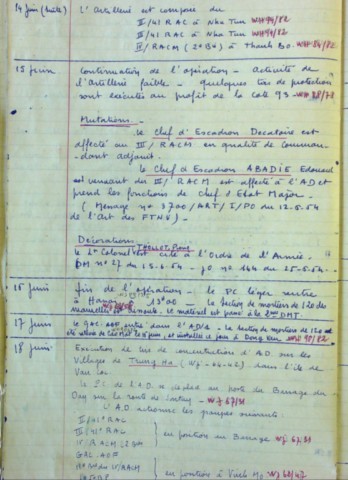 14 juin (suite) L'Artillerie est composée du
II/41 RAC à Nha Tun WH 94/82
III/41 RAC à Nha Tun WH 94/82
IV/RACM (2e Bie) à Thanh Bo. WH 84/82
15 juin Continuation de l'opération - activité de
l'artillerie faible - quelques tirs de protection
sont exécutés au profit de la cote 93 - WH 78/78
Mutations. -
le chef d'Escadron Decalaire est
affecté au III/RACM en qualité de comman-
dant adjoint.
le Chef d'Escadron ABADIE Edouard
venant du III/RACM est affecté à l'AD et
prend les fonctions de chef d'Etat Major.
(Message no 3700/ART/I/PO du 12.6.54
de l'Art des FTNV) -
Décorations.
le Lt Colonel est cité à l'Ordre de l'Armée.
DM no 27 du 15.6.54 - JO no 144 du 25.6.54.
16 juin fin de l'opération - le PC léger rentre
à Hanoi - le section de mortiers de 120 des
le matériel est passé à la 2ème DMT.
17 juin le GAC.AOF entre dans l'AD/2 - le section de mortiers de 120
18 juin Execution de tirs de concentrations d'A.D. sur les
Villages de Trung Ha (WJ-44-62) dans l'île de
Van Coc
le P.C. de l'A.D. se déplace au poste du Barrage du
Day sur la route de Sontay - WJ 67/31
L'A.D. actionne les groupes suivants:
II/41e RAC
III/41e RAC
IV/RACM
GAC.AOF
en position au Barrage WJ 67/31
IV/RACM
en position à Vinh